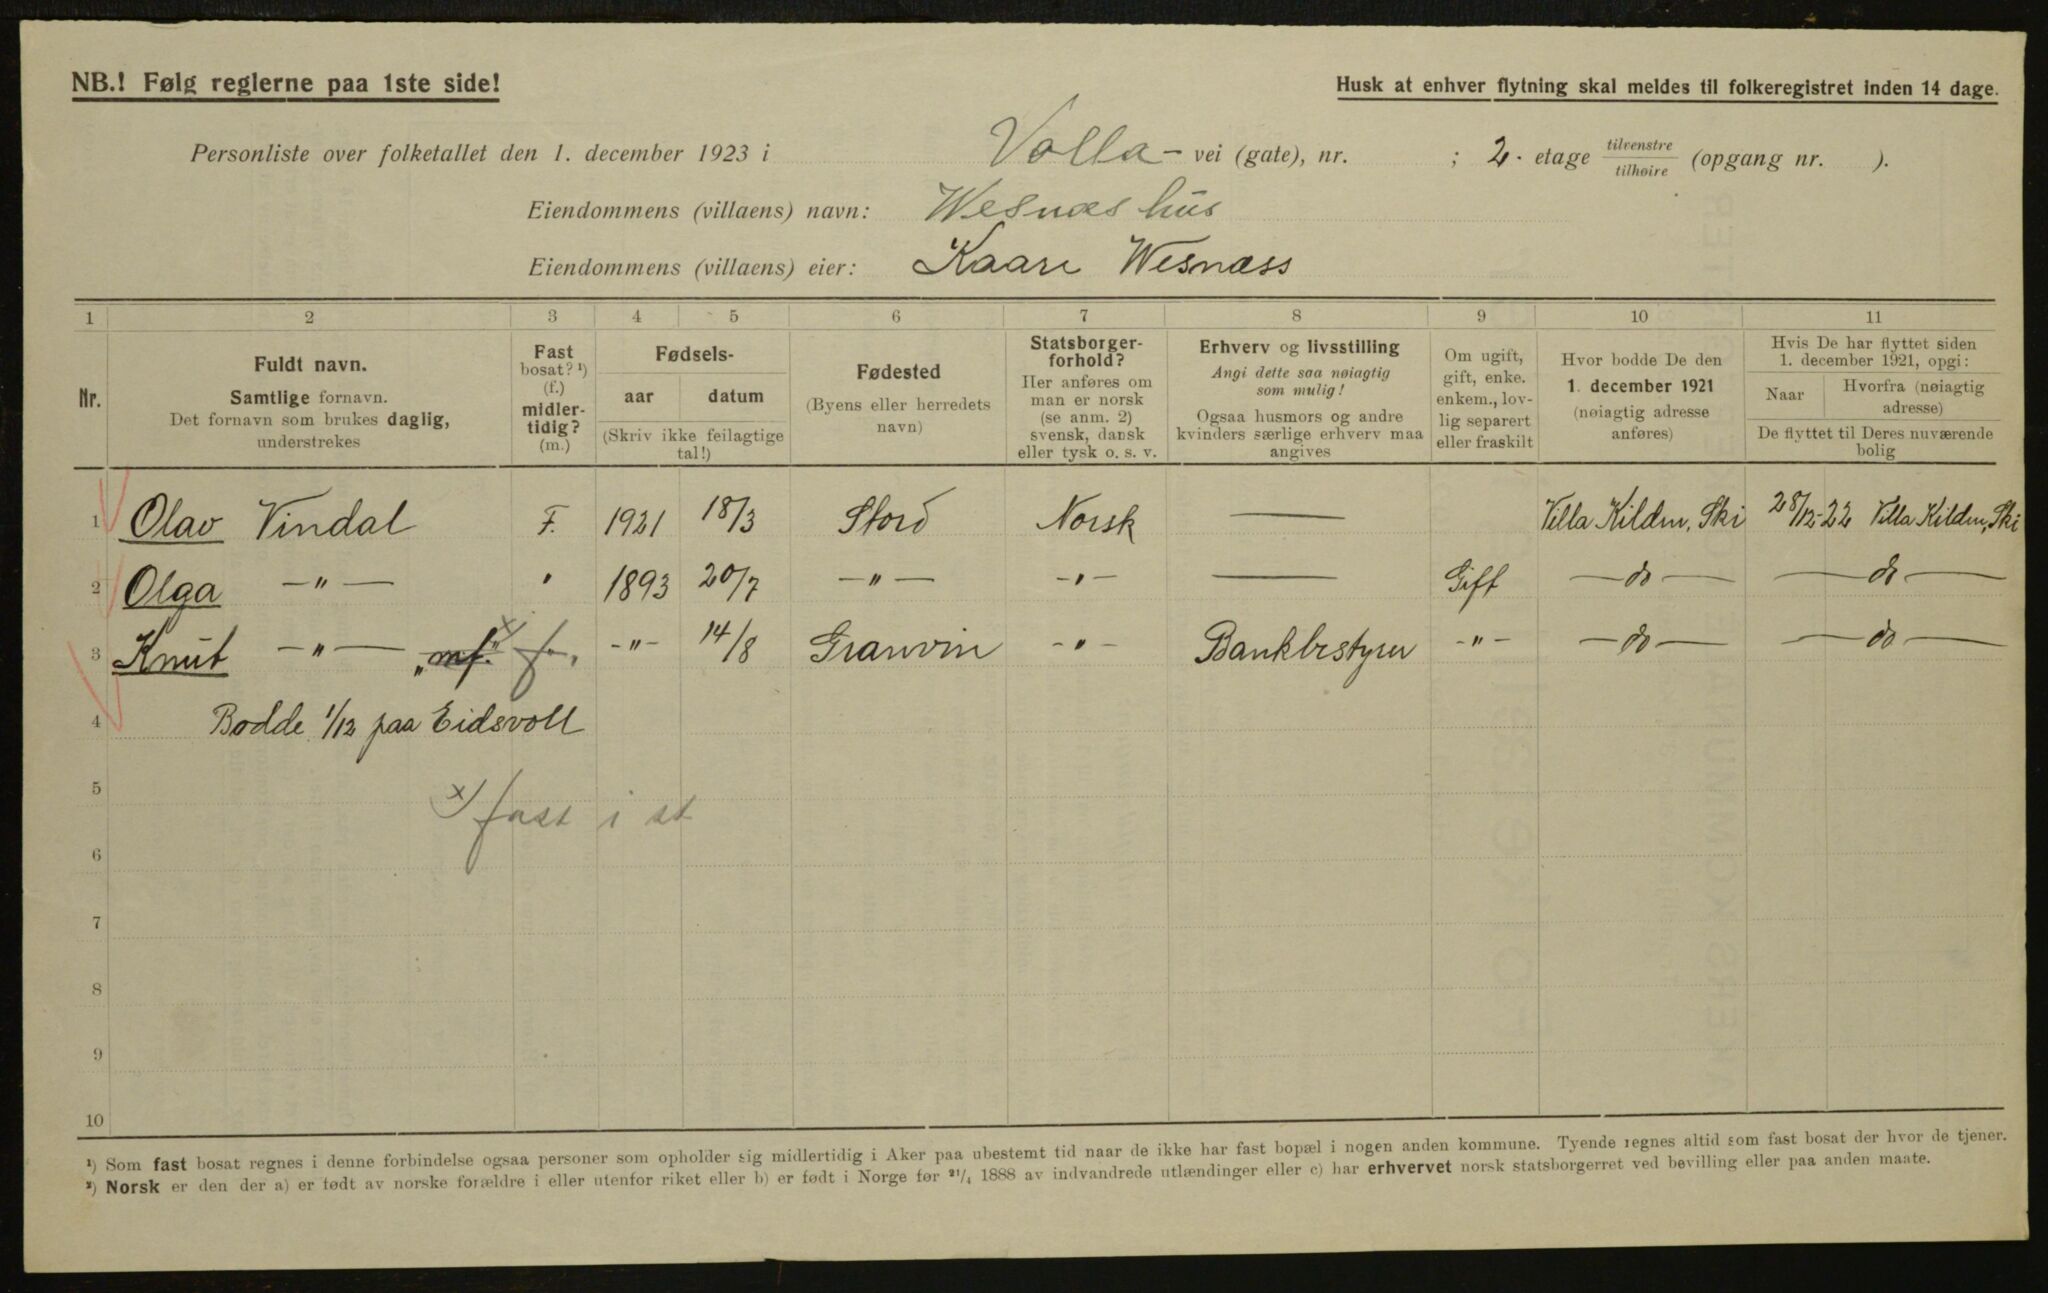 NB.! Følg reglerne paa 1ste side!
Husk at enhver flytning skal meldes til folkeregistret inden 14 dage.
Personliste over folketallet den 1. december 1923 i Volla- vei (gate), nr. ; 2. etage tilvenstre tilhøire (opgang nr. ).
Eiendommens (villaens) navn: Wesnæs hus
Eiendommens (villaens) eier: Kaare Wesnæss
1 2 3 4 5 6 7 8 9 10 11
Nr.
Fuldt navn.
Samtlige fornavn.
Det fornavn som brukes daglig,
understrekes
Fast
bosat? ¹)
(f.)
midler-
tidig?
(m.)
Fødsels-
aar datum
(Skriv ikke feilagtige
tal!)
Fødested
(Byens eller herredets
navn)
Statsborger-
forhold?
Her anføres om
man er norsk
(se anm. 2)
svensk, dansk
eller tysk o. s. v.
Erhverv og livsstilling
Angi dette saa nøiagtig
som mulig!
Ogsaa husmors og andre
kvinders særlige erhverv maa
angives
Om ugift,
gift, enke.
enkem., lov-
lig separert
eller fraskilt
Hvor bodde De den
1. december 1921
(nøiagtig adresse
anføres)
Hvis De har flyttet siden
1. december 1921, opgi:
Naar Hvorfra (nøiagtig
adresse)
De flyttet til Deres nuværende
bolig
1 Olav Vindal F. 1921 18/3 Stord Norsk — Villa Kilden, Ski 28/12-22 Villa Kilden, Ski
2 Olga —"— " 1893 20/7 —"— -"- — Gift —do— —do—
3 Knut —"— "mf." x) f. -"- 14/8 Granvin -"- Bankbestyrer -"- —do— —do—
4 Bodde 1/12 paa Eidsvoll
5
x) fast i st
6
7
8
9
10
¹) Som fast bosat regnes i denne forbindelse ogsaa personer som opholder sig midlertidig i Aker paa ubestemt tid naar de ikke har fast bopæl i nogen anden kommune. Tyende regnes altid som fast bosat der hvor de tjener.
²) Norsk er den der a) er født av norske forældre i eller utenfor riket eller b) er født i Norge før ²¹/₄ 1888 av indvandrede utlændinger eller c) har erhvervet norsk statsborgerret ved bevilling eller paa anden maate.